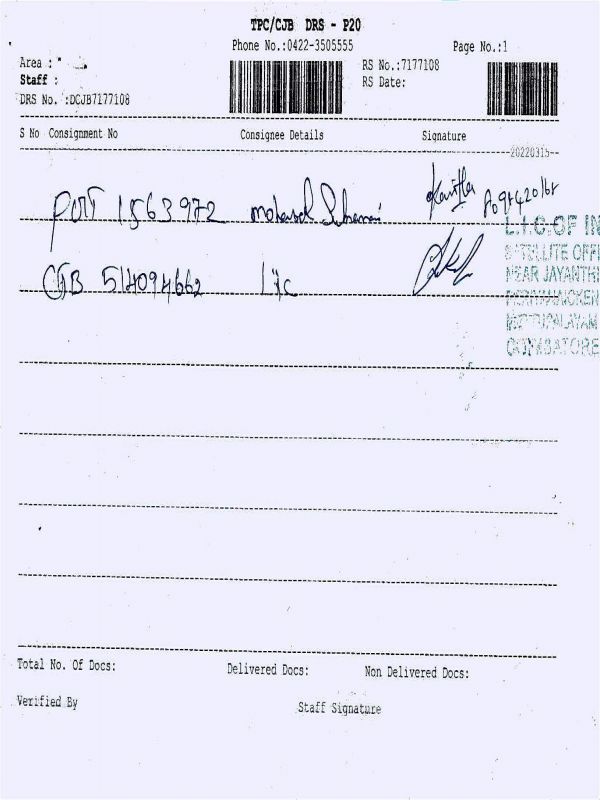 TPC/CJB DRS - P20
Phone No.:0422-3505555 Page No.:1
Area :
Staff :
DRS No. :DCJB7177108
RS No.:7177108
RS Date:
S No Consignment No Consignee Details Signature
20220315
1563972
CJB 514094662 lic
L.I.C.OF IN
SATELLITE OFFI
NEAR JAYANTHI
COIMBATORE
Total No. Of Docs: Delivered Docs: Non Delivered Docs:
Verified By Staff Signature